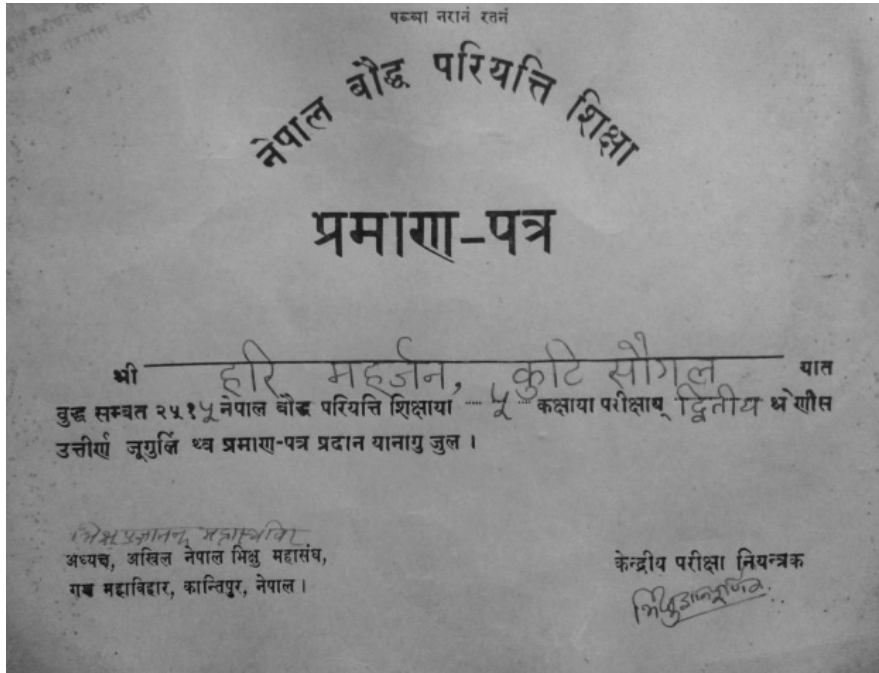 पञ्ञा नरानं रतनं
नेपाल बौद्ध परियत्ति शिक्षा
प्रमाण-पत्र
श्री हरि महर्जन, कुटि सौगल यात
बुद्ध सम्बत २५१५ नेपाल बौद्ध परियत्ति शिक्षाया ५ कक्षाया परीक्षाय् द्वितीय श्रेणीस
उत्तीर्ण जूगुलिं थ्व प्रमाण-पत्र प्रदान यानागु जुल ।
भिक्षु प्रज्ञानन्द महास्थविर
अध्यक्ष, अखिल नेपाल भिक्षु महासंघ,
महाविहार, कान्तिपुर, नेपाल ।
केन्द्रीय परीक्षा नियन्त्रक